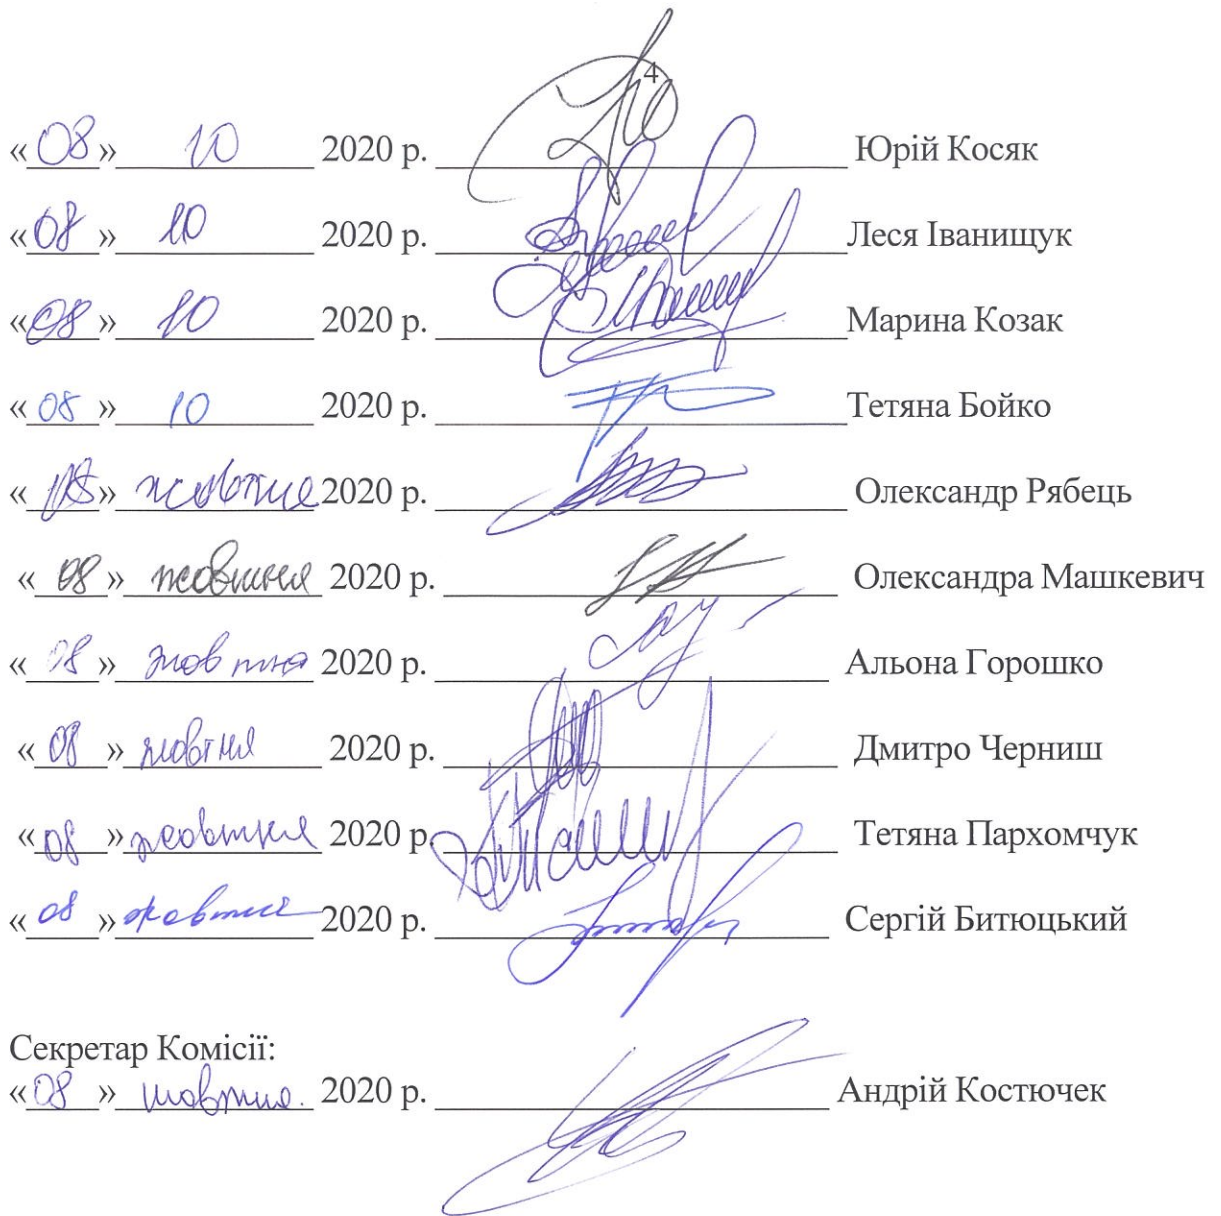 4
«08» 10 2020 р. Юрій Косяк
«08» 10 2020 р. Леся Іванищук
«08» 10 2020 р. Марина Козак
«08» 10 2020 р. Тетяна Бойко
«08» жовтня 2020 р. Олександр Рябець
«08» жовтня 2020 р. Олександра Машкевич
«08» жовтня 2020 р. Альона Горошко
«08» жовтня 2020 р. Дмитро Черниш
«08» жовтня 2020 р. Тетяна Пархомчук
«08» жовтня 2020 р. Сергій Битюцький
Секретар Комісії:
«08» жовтня. 2020 р. Андрій Костючек